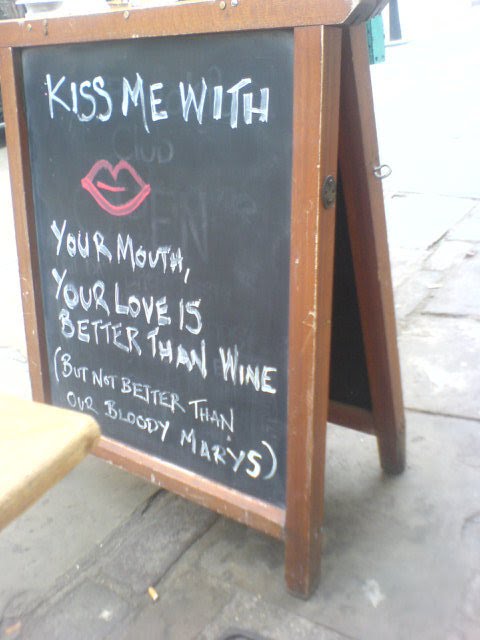 KISS ME WITH
YOUR MOUTH,
YOUR LOVE IS
BETTER THAN WINE
(BUT NOT BETTER THAN
OUR BLOODY MARYS)